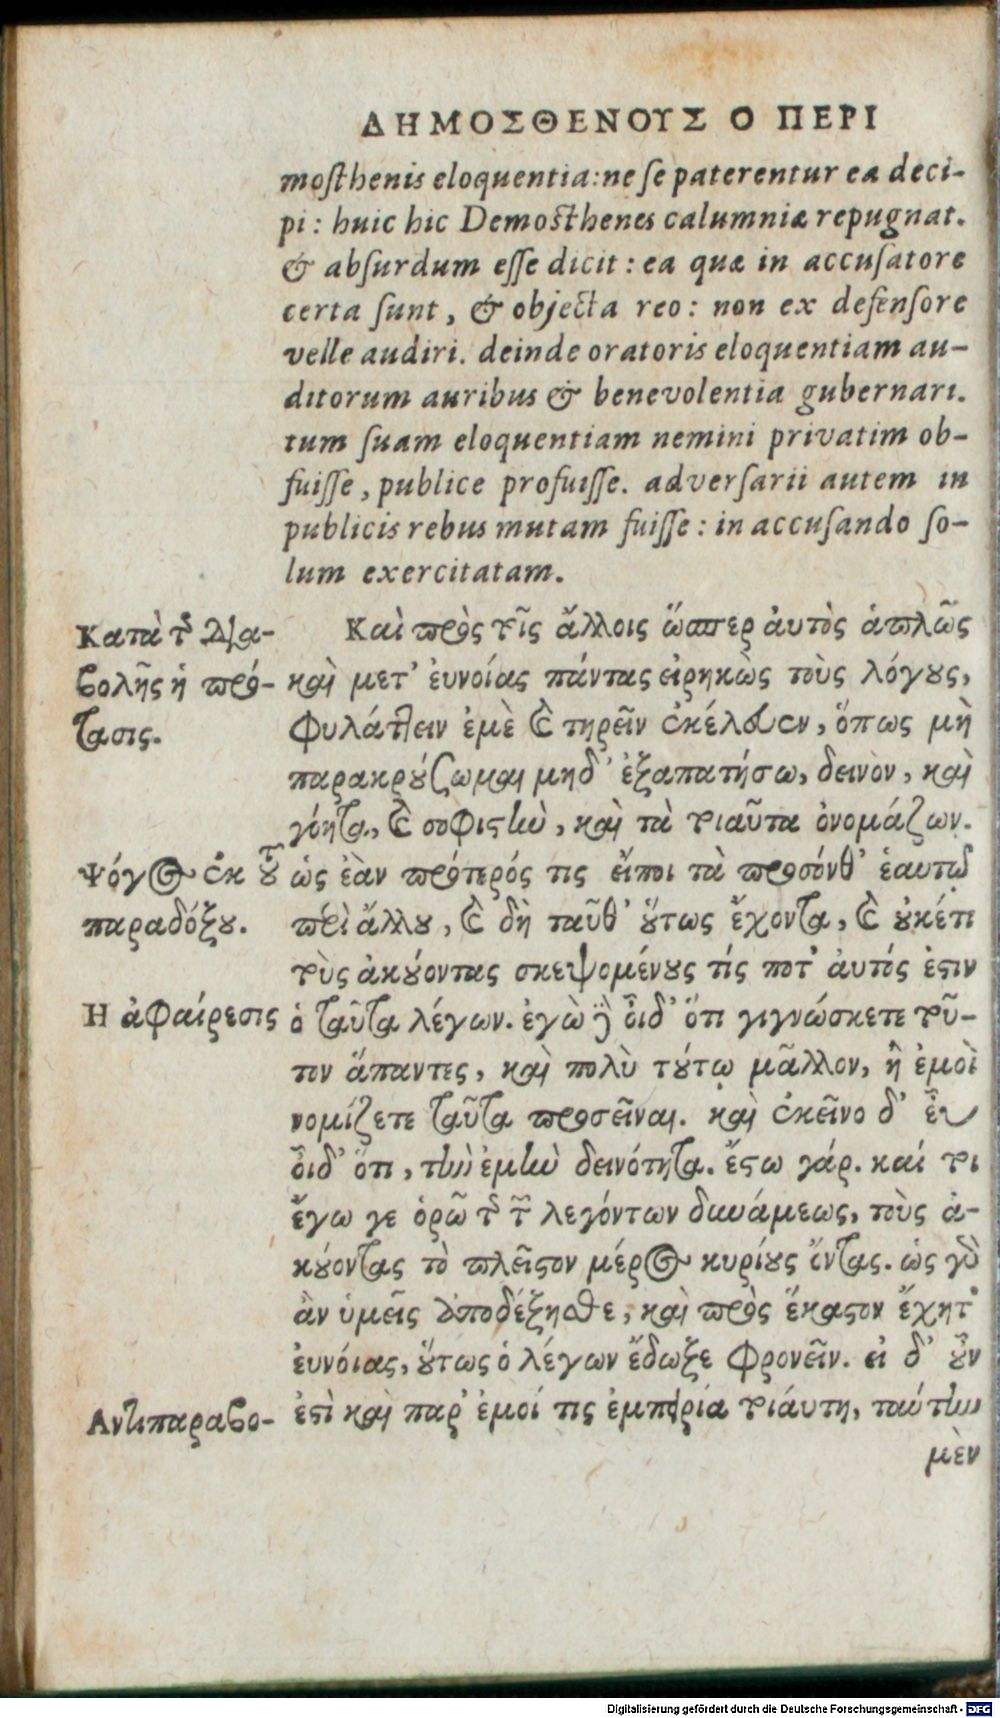 ΔΗΜΟΣΘΕΝΟΥΣ Ο ΠΕΡΙ
mosthenis eloquentia: ne se paterentur ea deci-
pi: huic hic Demosthenes calumniæ repugnat.
& absurdum esse dicit: ea quæ in accusatore
certa sunt, & objecta reo: non ex defensore
velle audiri. deinde oratoris eloquentiam au-
ditorum auribus & benevolentia gubernari.
tum suam eloquentiam nemini privatim ob-
fuisse, publice profuisse. adversarii autem in
publicis rebus mutam fuisse: in accusando so-
lum exercitatam.
Κατὰ τῆς Δια-
βολῆς ἡ πρό-
τασις.
Καὶ πρὸς τοῖς ἄλλοις ὥσπερ αὐτὸς ἁπλῶς
καὶ μετ' εὐνοίας πάντας εἰρηκὼς τοὺς λόγους,
φυλάττειν ἐμὲ καὶ τηρεῖν ἐκέλευεν, ὅπως μὴ
παρακρούσωμαι μηδ' ἐξαπατήσω, δεινὸν, καὶ
γόητα, καὶ σοφιστὴν, καὶ τὰ τοιαῦτα ὀνομάζων.
Ψόγος ἐκ τοῦ
παραδόξου.
ὡς ἐὰν πρότερός τις εἴποι τὰ προσόνθ' ἑαυτῷ
περὶ ἄλλου, καὶ δὴ ταῦθ' οὕτως ἔχοντα, καὶ οὐκέτι
τοὺς ἀκούοντας σκεψομένους τίς ποτ' αὐτός ἐστιν
Η ἀφαίρεσις
ὁ ταῦτα λέγων. ἐγὼ δὲ οἶδ' ὅτι γιγνώσκετε τοῦ-
τον ἅπαντες, καὶ πολὺ τούτῳ μᾶλλον, ἢ ἐμοὶ
νομίζετε ταῦτα προσεῖναι. καὶ ἐκεῖνο δ' εὖ
οἶδ' ὅτι, τὴν ἐμὴν δεινότητα. ἔστω γάρ. καί τοι
ἔγω γε ὁρῶ τῆς τῶν λεγόντων δυνάμεως, τοὺς ἀ-
κούοντας τὸ πλεῖστον μέρος κυρίους ὄντας. ὡς γὰρ
ἂν ὑμεῖς ἀποδέξησθε, καὶ πρὸς ἕκαστον ἔχητ'
εὐνόιας, οὕτως ὁ λέγων ἔδωξε φρονεῖν. εἰ δ' οὖν
Αντιπαραβο-
ἐστὶ καὶ παρ' ἐμοί τις ἐμπειρία τοιάυτη, ταύτην
μὲν
Digitalisierung gefördert durch die Deutsche Forschungsgemeinschaft - DFG